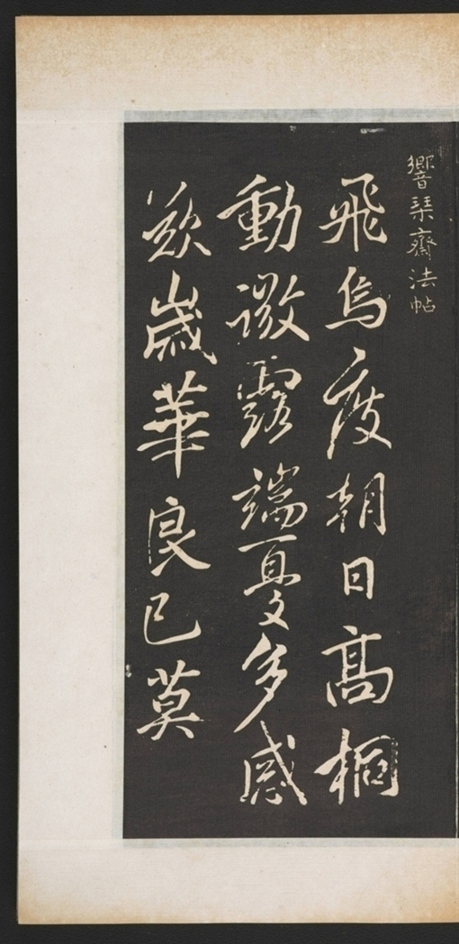 響琹齋法帖
飛鳥度朝日高桐
動微露端憂多感
歎歲華良已莫